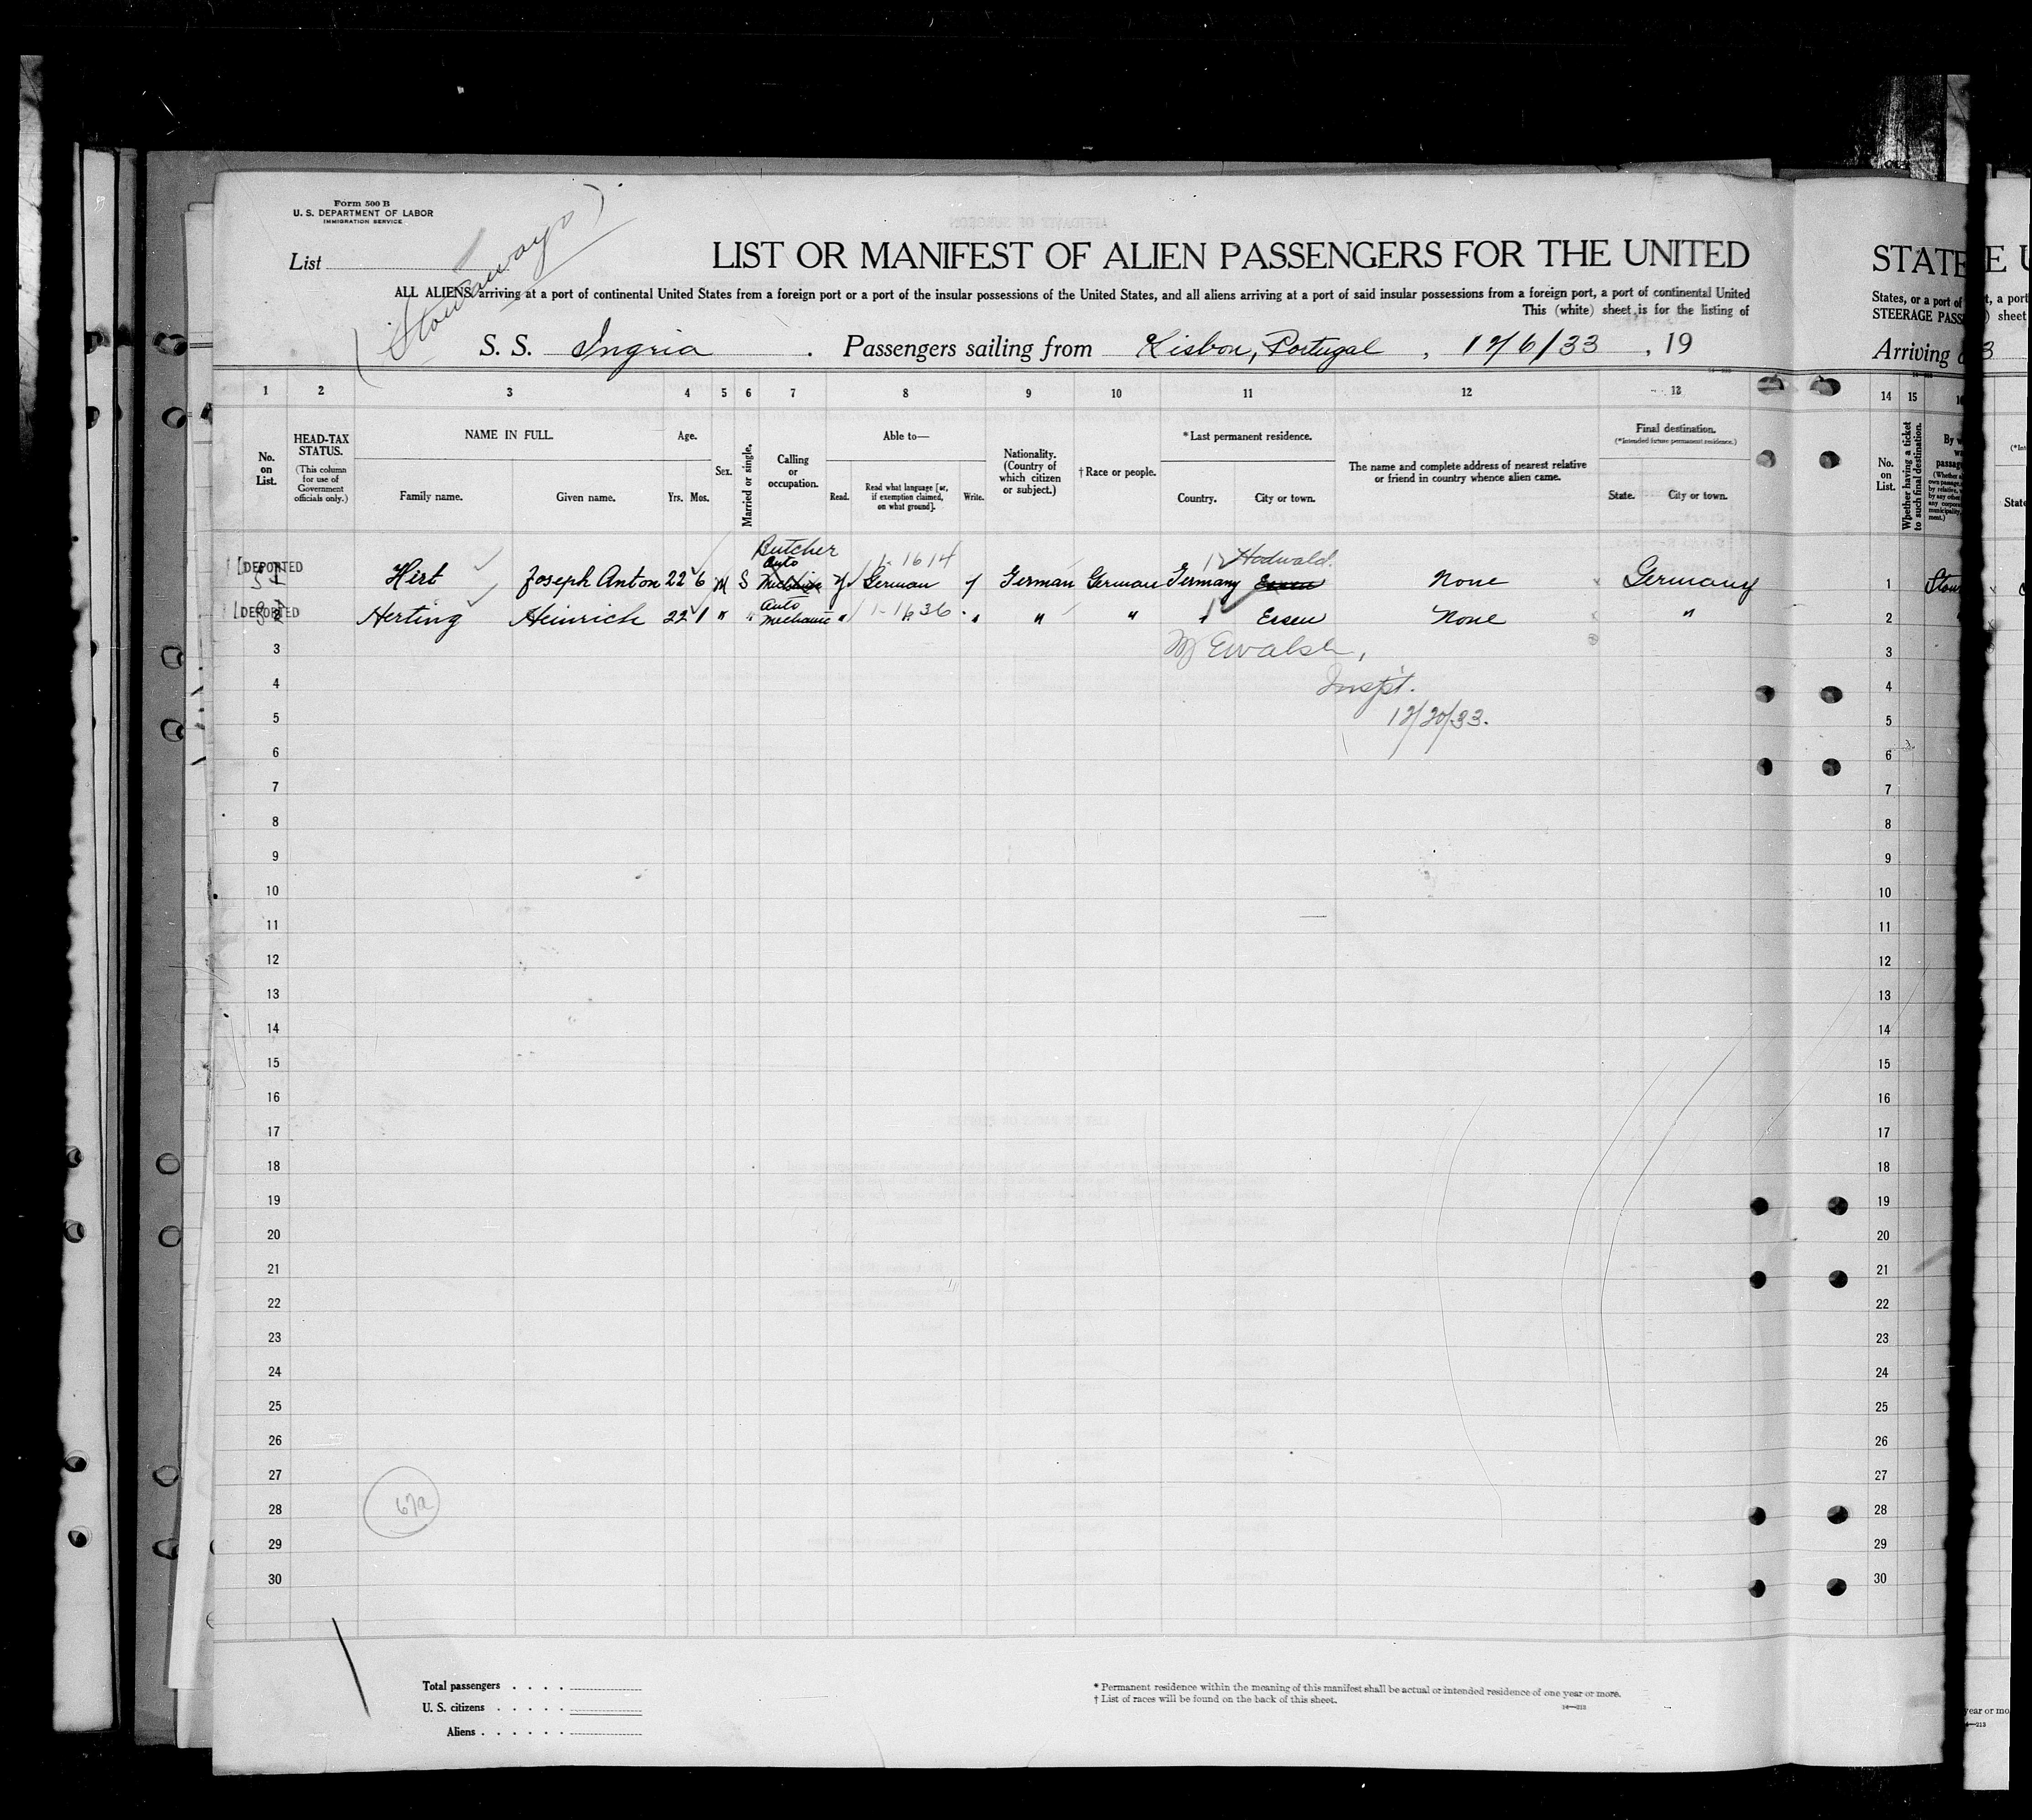 Form 500 B
U. S. DEPARTMENT OF LABOR
IMMIGRATION SERVICE
List
(Stowaways)
LIST OR MANIFEST OF ALIEN PASSENGERS FOR THE UNITED
ALL ALIENS arriving at a port of continental United States from a foreign port or a port of the insular possessions of the United States, and all aliens arriving at a port of said insular possessions from a foreign port, a port of continental United
This (white) sheet is for the listing of
S. S. Ingria . Passengers sailing from Lisbon, Portugal , 12/6/33 , 19
1 2 3 4 5 6 7 8 9 10 11 12 13
No. on List.
HEAD-TAX STATUS. (This column for use of Government officials only.)
NAME IN FULL. Family name. Given name.
Age. Yrs. Mos.
Sex.
Married or single.
Calling or occupation.
Able to— Read. Read what language [or, if exemption claimed, on what ground]. Write.
Nationality. (Country of which citizen or subject.)
†Race or people.
*Last permanent residence. Country. City or town.
The name and complete address of nearest relative or friend in country whence alien came.
Final destination. (*Intended future permanent residence.) State. City or town.
Butcher
DEPORTED Hirt Joseph Anton 22 6 M S Auto Mechanic y German y German German Germany Essen None Germany
1-1614
DEPORTED Herting Heinrich 22 1 " " Auto mechanic " " " " " " Essen None "
1-1636
3
4 Insp't.
5 12/20/33.
6
7
8
9
10
11
12
13
14
15
16
17
18
19
20
21
22
23
24
25
26
27
28
29
30
67a
Total passengers
U. S. citizens
Aliens
* Permanent residence within the meaning of this manifest shall be actual or intended residence of one year or more.
† List of races will be found on the back of this sheet.
14—213
STATE
States, or a port of
STEERAGE PASS
Arriving
14 15
No. on List.
Whether having a ticket to such final destination.
1 Stow
2
3
4
5
6
7
8
9
10
11
12
13
14
15
16
17
18
19
20
21
22
23
24
25
26
27
28
29
30
E U
t, a port
) sheet
3
State
year or mo